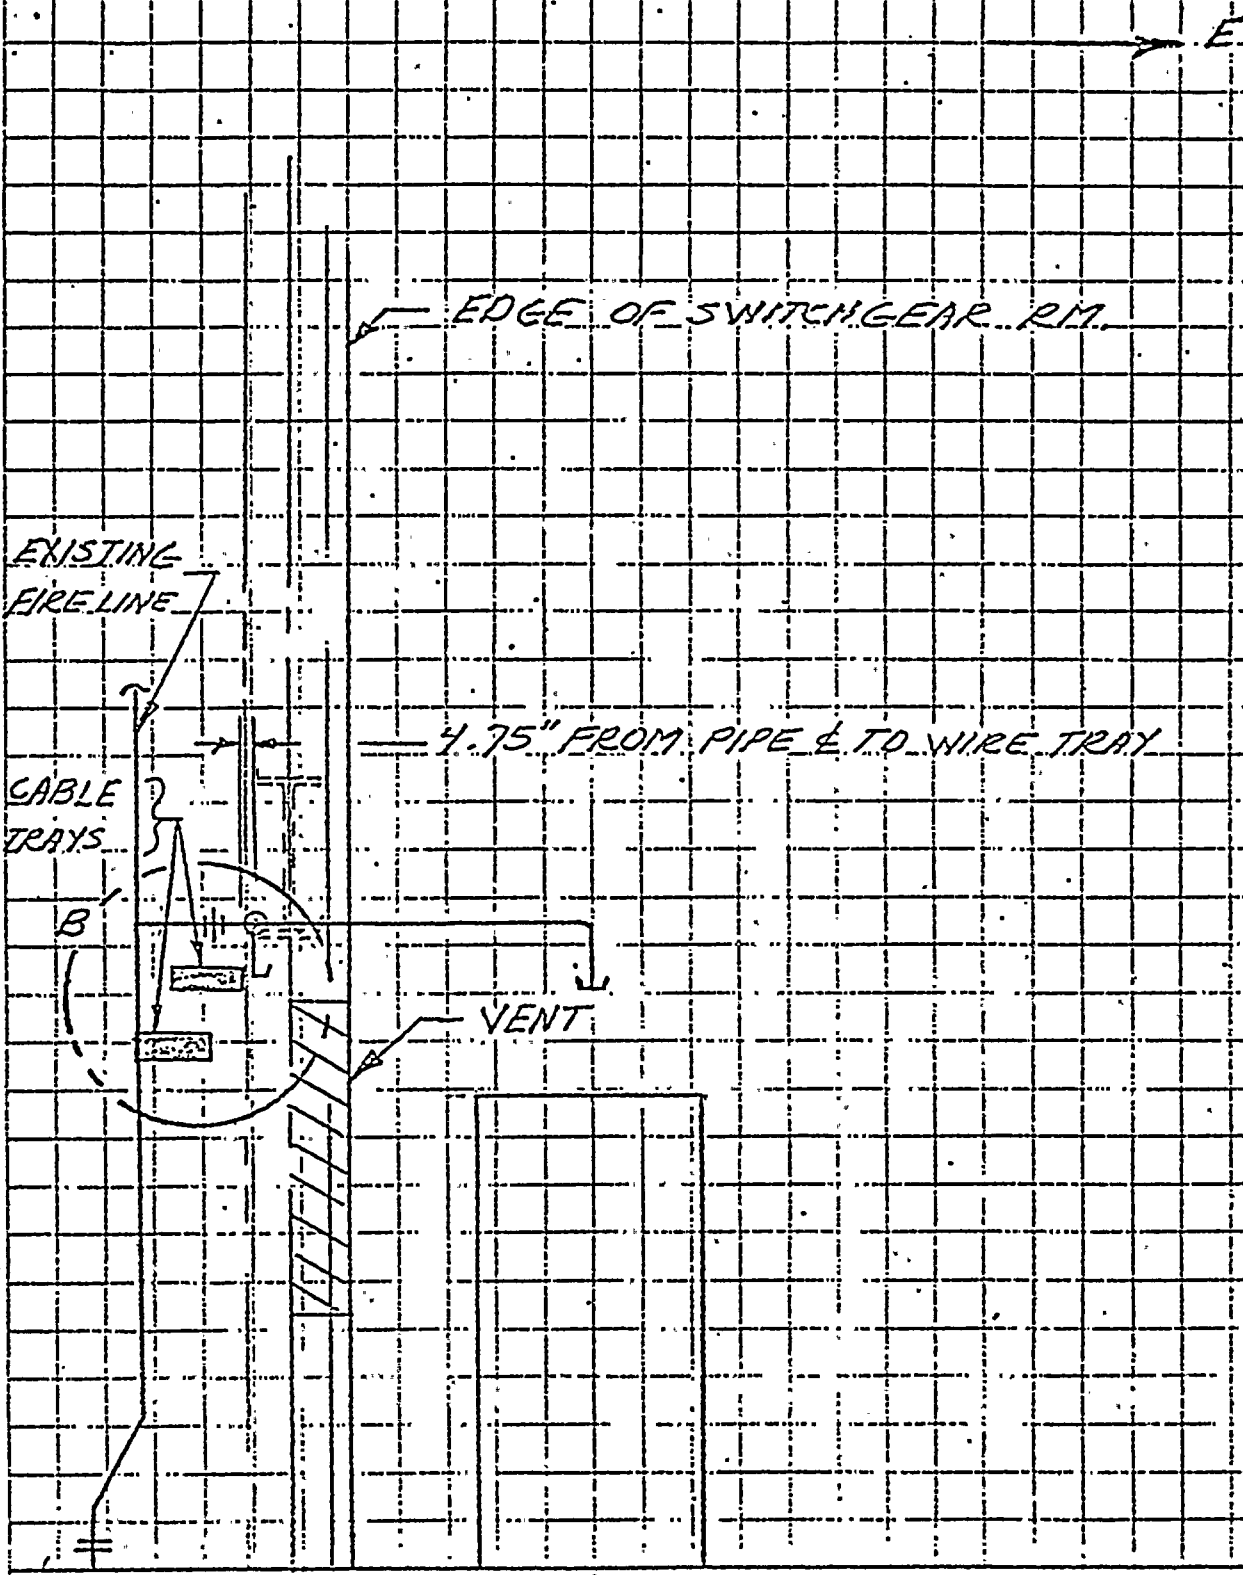 E
EDGE OF SWITCHGEAR RM.
EXISTING
FIRE LINE
4.75" FROM PIPE ℄ TO WIRE TRAY
CABLE
TRAYS
B
VENT